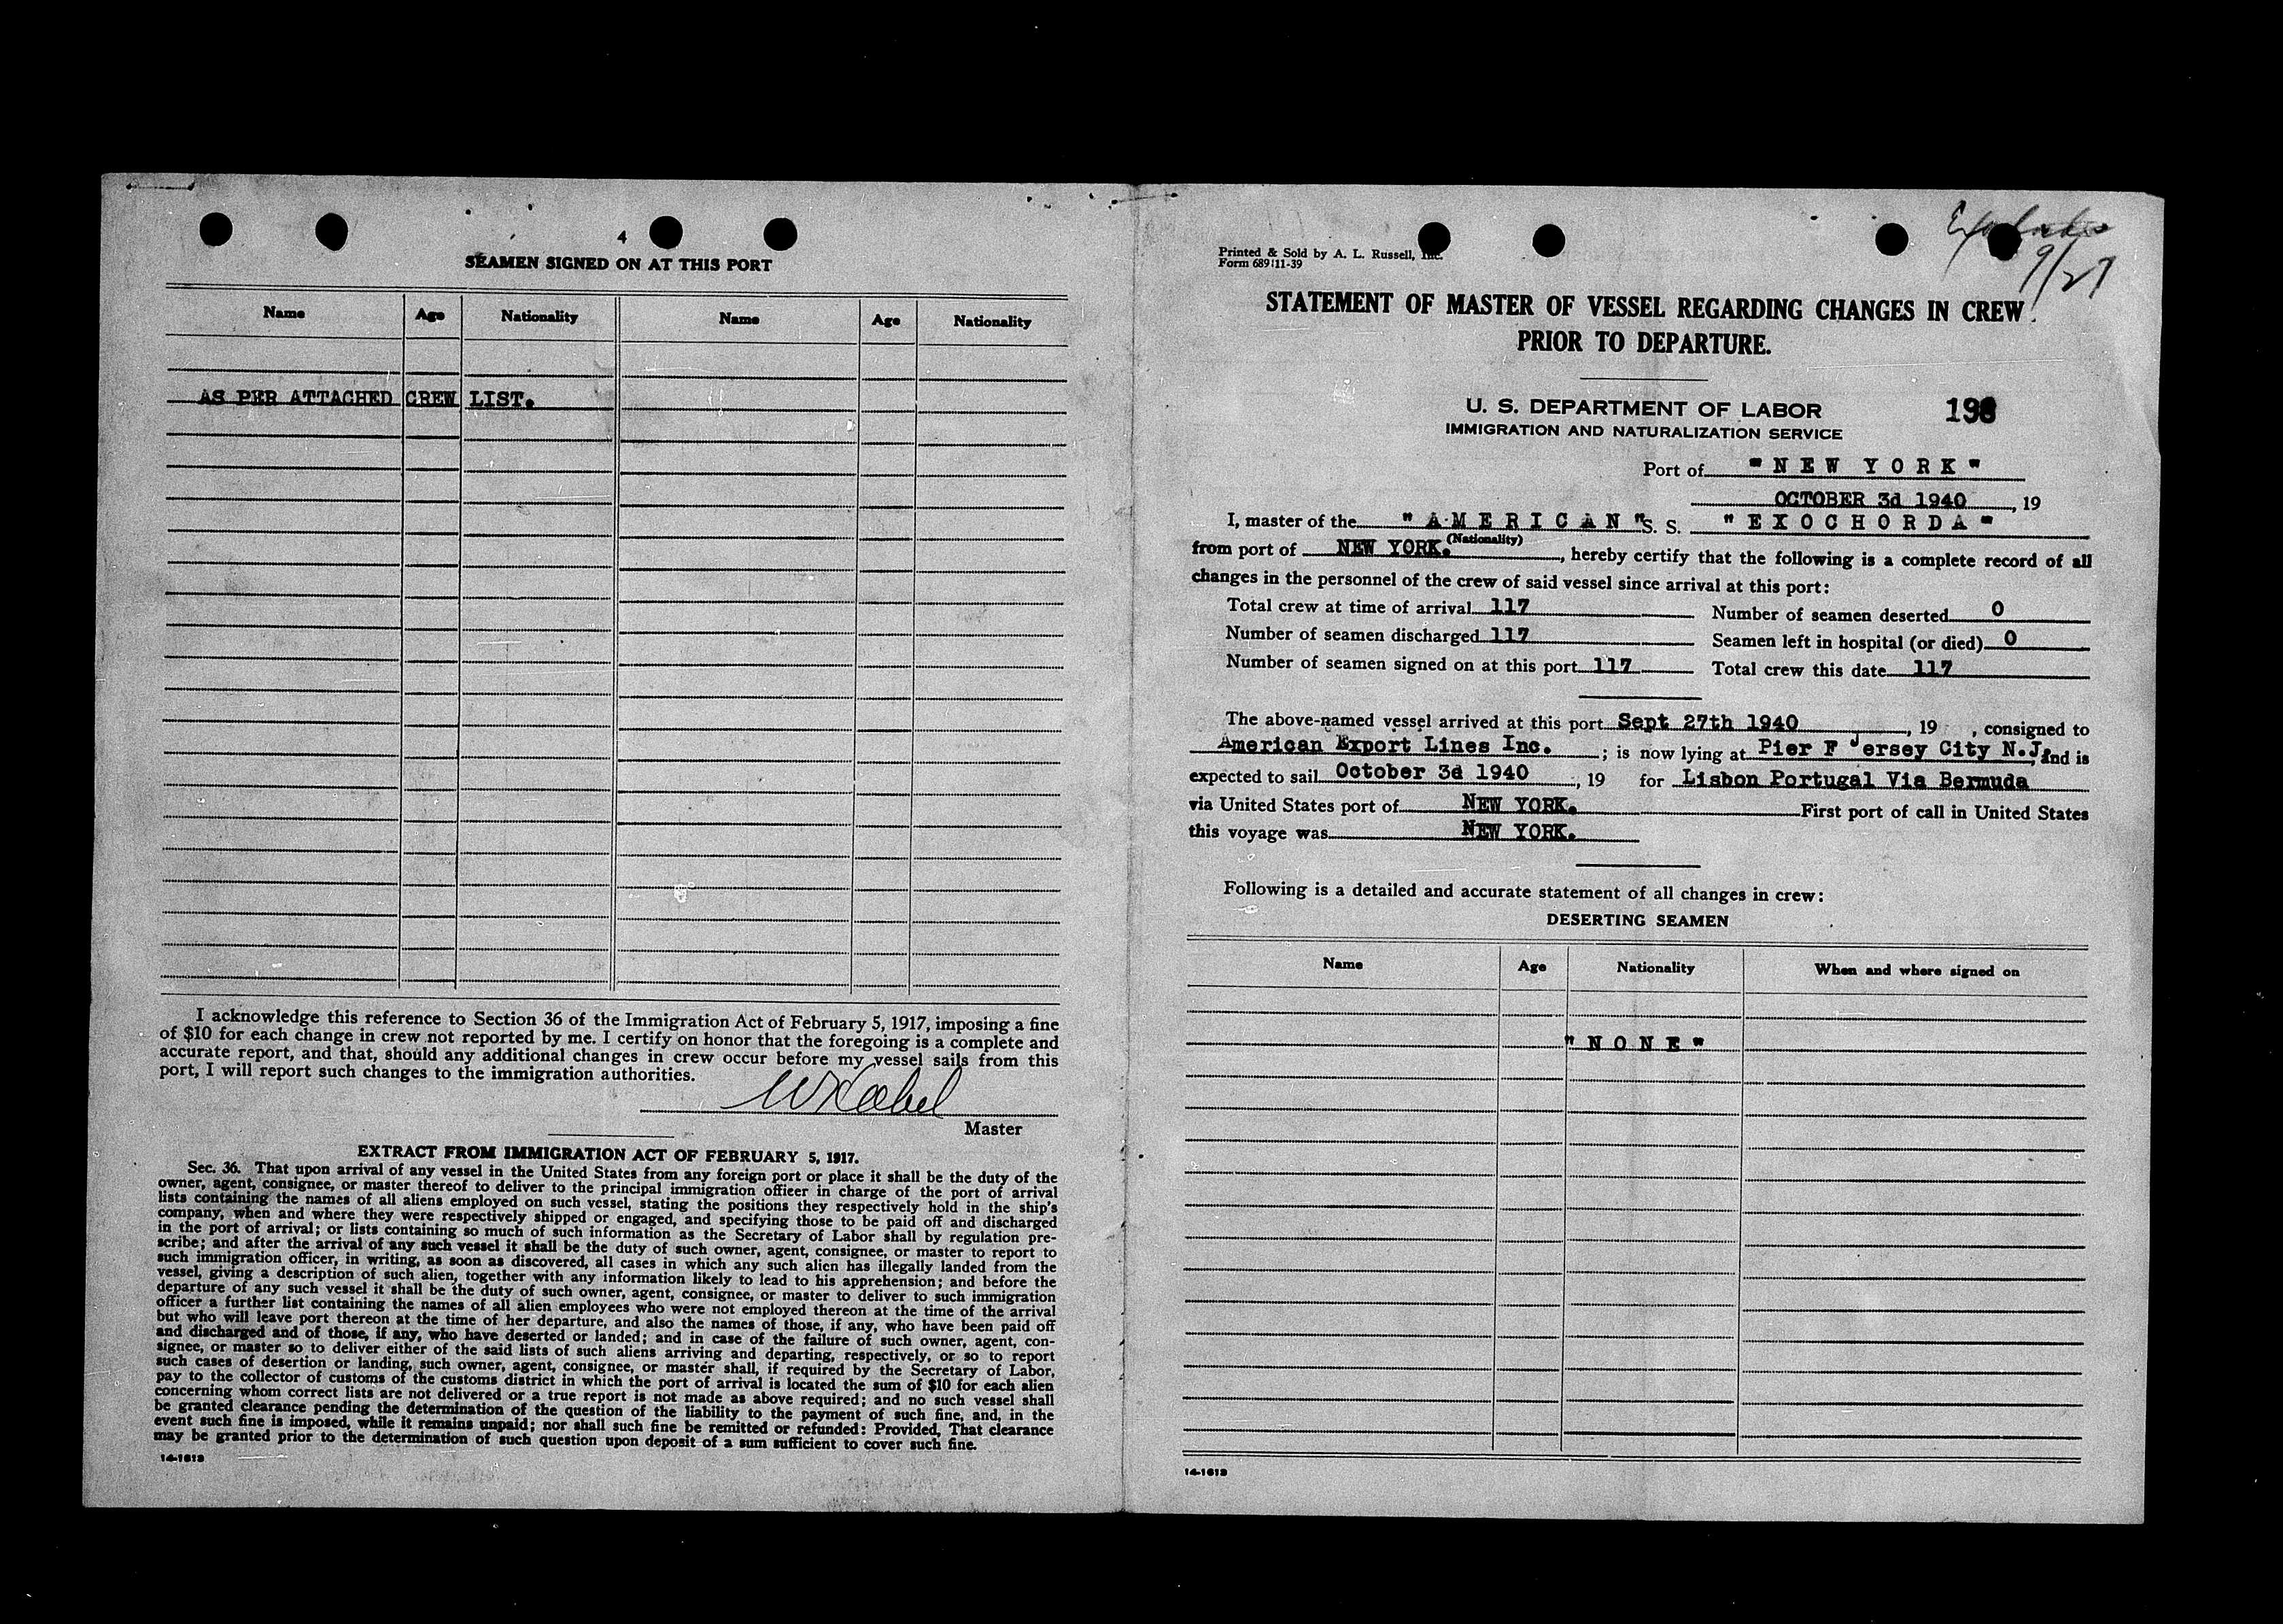 4
SEAMEN SIGNED ON AT THIS PORT
Name Age Nationality Name Age Nationality
AS PER ATTACHED CREW LIST.
I acknowledge this reference to Section 36 of the Immigration Act of February 5, 1917, imposing a fine
of $10 for each change in crew not reported by me. I certify on honor that the foregoing is a complete and
accurate report, and that, should any additional changes in crew occur before my vessel sails from this
port, I will report such changes to the immigration authorities.
Master
EXTRACT FROM IMMIGRATION ACT OF FEBRUARY 5, 1917.
Sec. 36. That upon arrival of any vessel in the United States from any foreign port or place it shall be the duty of the
owner, agent, consignee, or master thereof to deliver to the principal immigration officer in charge of the port of arrival
lists containing the names of all aliens employed on such vessel, stating the positions they respectively hold in the ship's
company, when and where they were respectively shipped or engaged, and specifying those to be paid off and discharged
in the port of arrival; or lists containing so much of such information as the Secretary of Labor shall by regulation pre-
scribe; and after the arrival of any such vessel it shall be the duty of such owner, agent, consignee, or master to report to
such immigration officer, in writing, as soon as discovered, all cases in which any such alien has illegally landed from the
vessel, giving a description of such alien, together with any information likely to lead to his apprehension; and before the
departure of any such vessel it shall be the duty of such owner, agent, consignee, or master to deliver to such immigration
officer a further list containing the names of all alien employees who were not employed thereon at the time of the arrival
but who will leave port thereon at the time of her departure, and also the names of those, if any, who have been paid off
and discharged and of those, if any, who have deserted or landed; and in case of the failure of such owner, agent, con-
signee, or master so to deliver either of the said lists of such aliens arriving and departing, respectively, or so to report
such cases of desertion or landing, such owner, agent, consignee, or master shall, if required by the Secretary of Labor,
pay to the collector of customs of the customs district in which the port of arrival is located the sum of $10 for each alien
concerning whom correct lists are not delivered or a true report is not made as above required; and no such vessel shall
be granted clearance pending the determination of the question of the liability to the payment of such fine, and, in the
event such fine is imposed, while it remains unpaid; nor shall such fine be remitted or refunded: Provided, That clearance
may be granted prior to the determination of such question upon deposit of a sum sufficient to cover such fine.
14-1613
9/27
Printed & Sold by A. L. Russell, Inc.
Form 689 11-39
STATEMENT OF MASTER OF VESSEL REGARDING CHANGES IN CREW
PRIOR TO DEPARTURE.
U. S. DEPARTMENT OF LABOR
IMMIGRATION AND NATURALIZATION SERVICE
Port of "NEW YORK"
OCTOBER 3d 1940, 19
I, master of the "AMERICAN" S. S. "EXOCHORDA"
(Nationality)
from port of NEW YORK., hereby certify that the following is a complete record of all
changes in the personnel of the crew of said vessel since arrival at this port:
Total crew at time of arrival 117 Number of seamen deserted 0
Number of seamen discharged 117 Seamen left in hospital (or died) 0
Number of seamen signed on at this port 117 Total crew this date 117
The above-named vessel arrived at this port Sept 27th 1940, 19 , consigned to
American Export Lines Inc. ; is now lying at Pier F Jersey City N.J. and is
expected to sail October 3d 1940, 19 for Lisbon Portugal Via Bermuda
via United States port of NEW YORK. First port of call in United States
this voyage was NEW YORK.
Following is a detailed and accurate statement of all changes in crew:
DESERTING SEAMEN
Name Age Nationality When and where signed on
"NONE"
14-1613